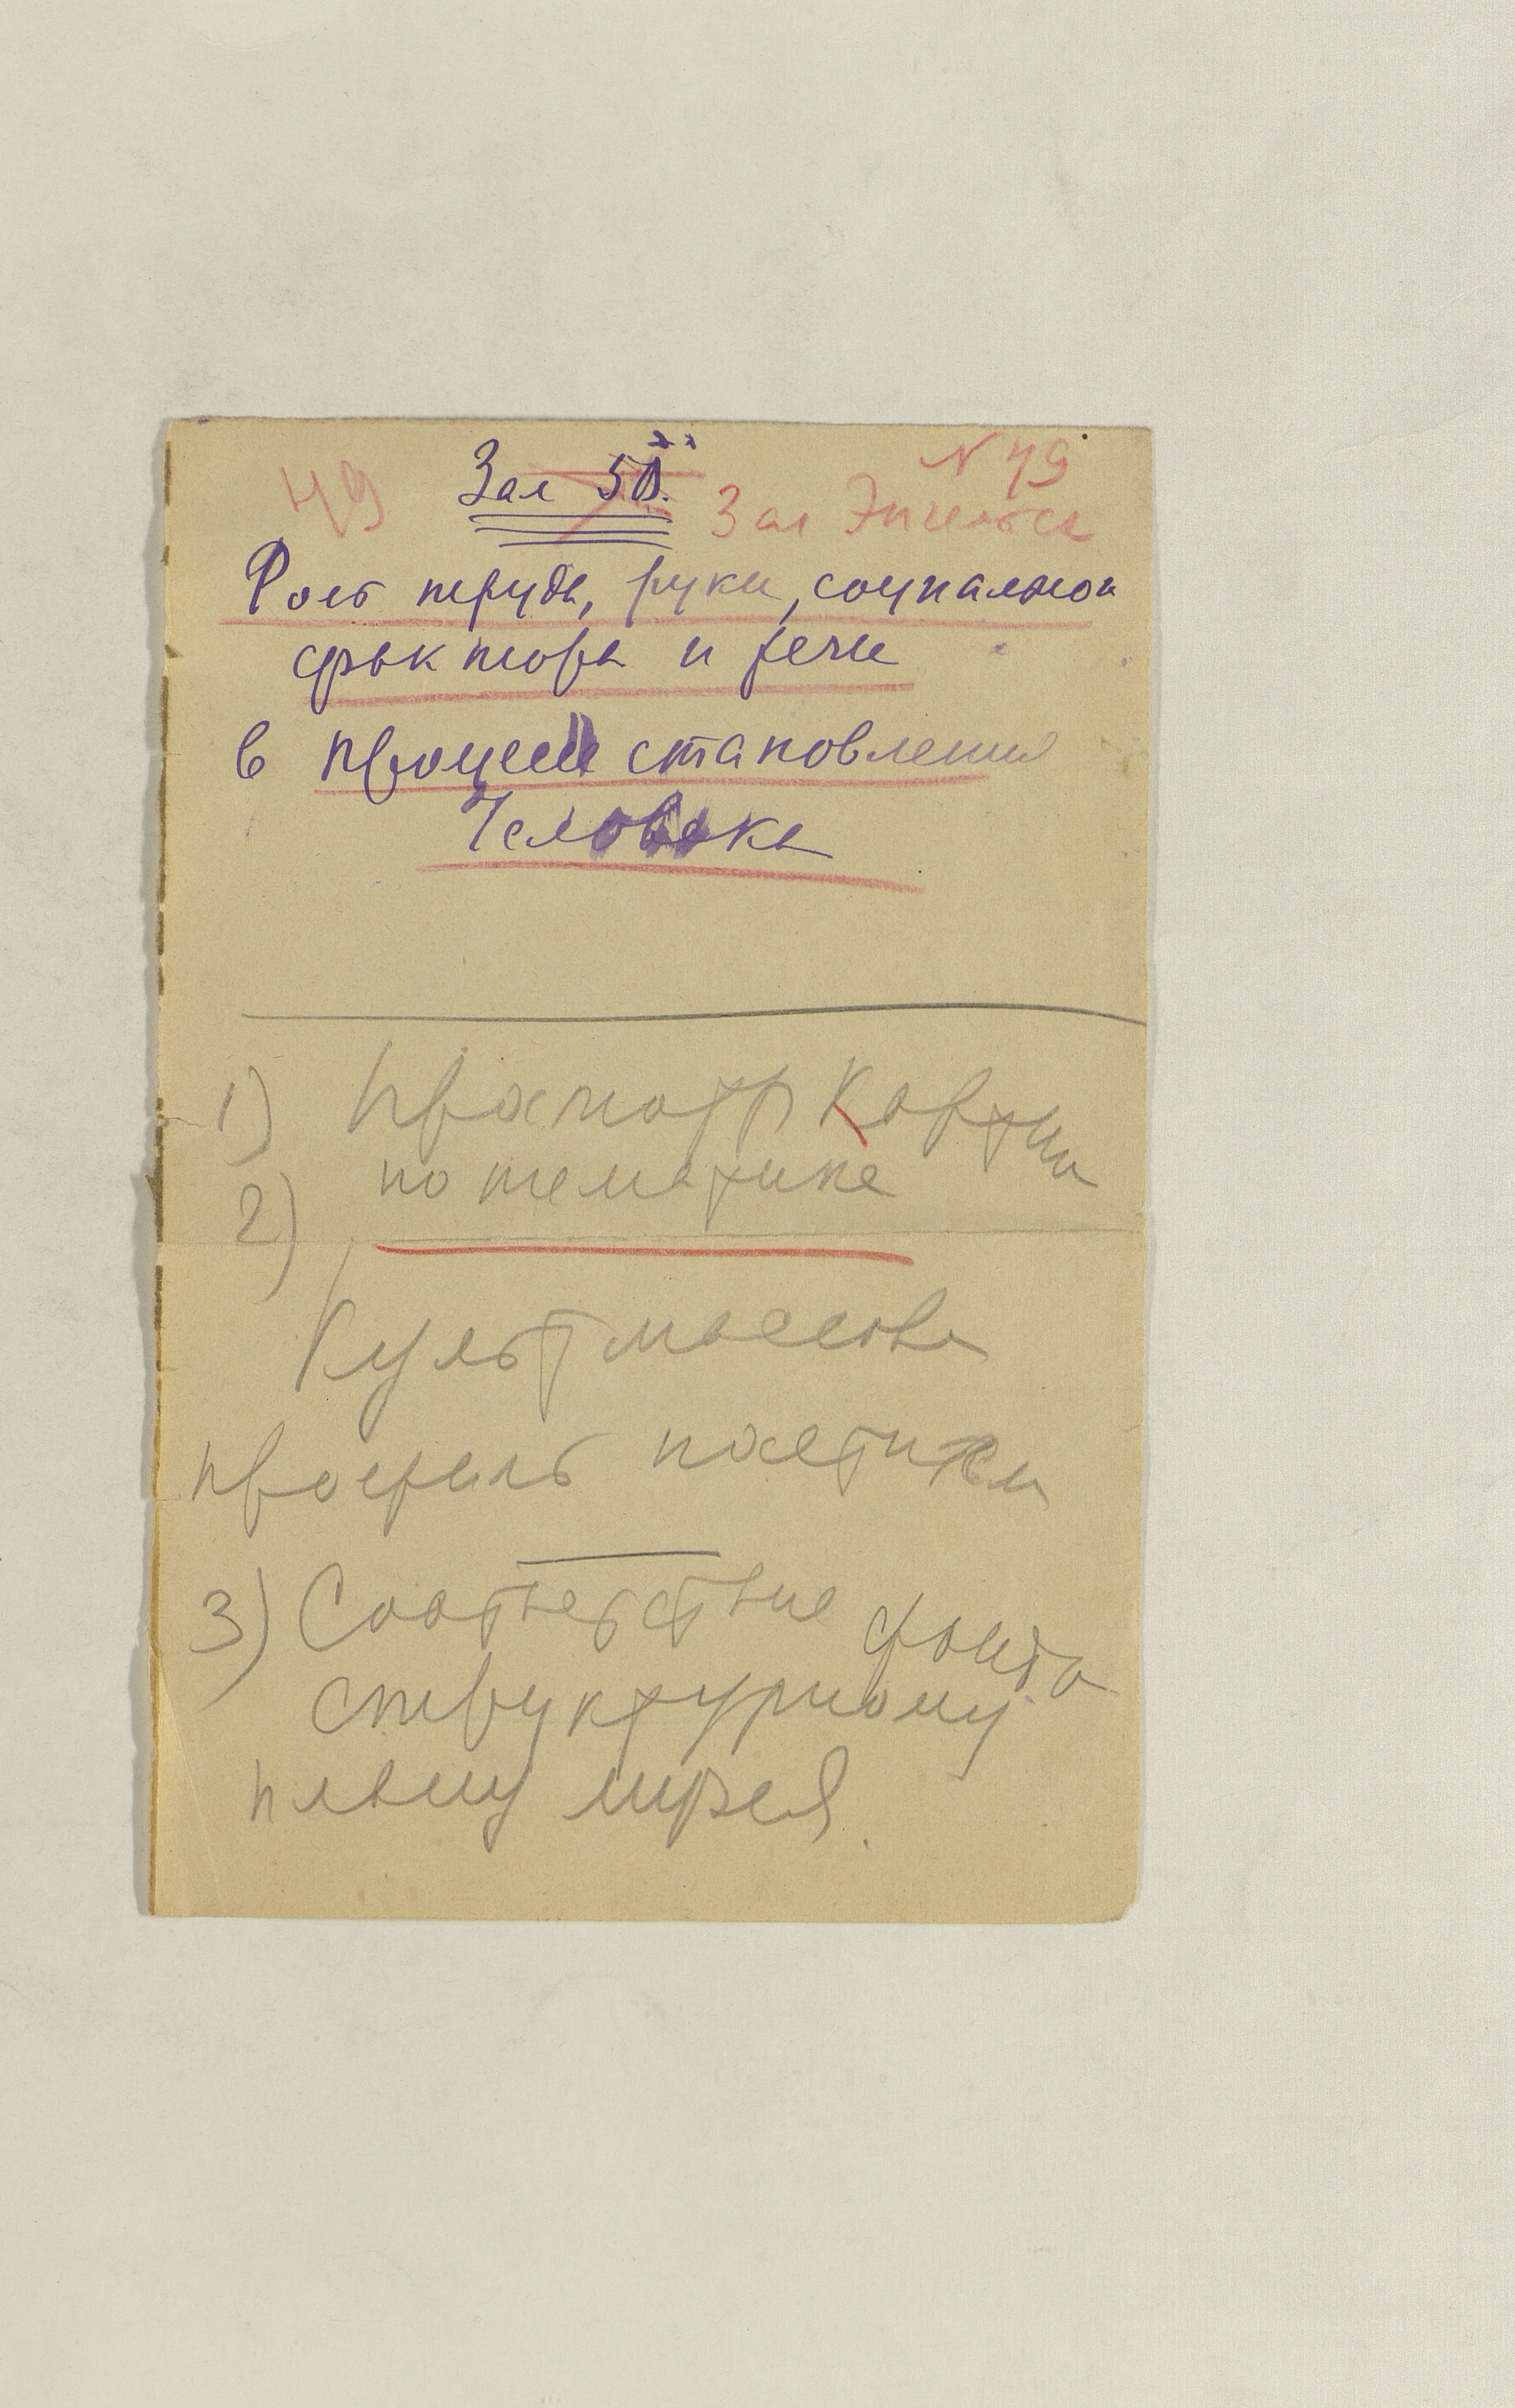 N 49
49 Зал 50. Зал Энгельса
Роль труда, руки, социальной
фактора и речи
в процессе становления
Человека
1) Просмотр Картин
по тематике
2)
Культмассова
профиль
3) Соответствие фонда
структурному
плану музея.